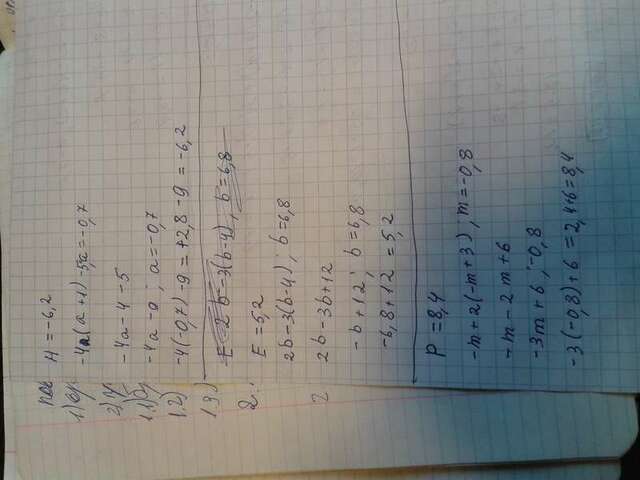 пов
1)
2)
1.1)
1.2)
1.3)
2.
2
H = -6,2
-4a(a+1)-5; a = -0,7
-4a-4-5
-4a-9; a = -0,7
-4(-0,7)-9 = +2,8-9 = -6,2
E 2b-3(b-4), b = 6,8
E = 5,2
2b-3(b-4); b = 6,8
2b-3b+12
-b+12; b = 6,8
-6,8+12 = 5,2
P = 8,4
-m+2(-m+3); m = -0,8
-m-2m+6
-3m+6; -0,8
-3(-0,8)+6 = 2,4+6 = 8,4